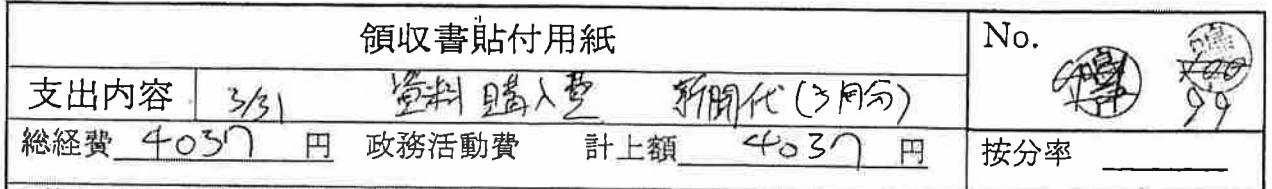 領収書貼付用紙 No. 99
支出内容 3/31 資料購入費 新聞代(3月分)
総経費 4037 円 政務活動費 計上額 4037 円 按分率